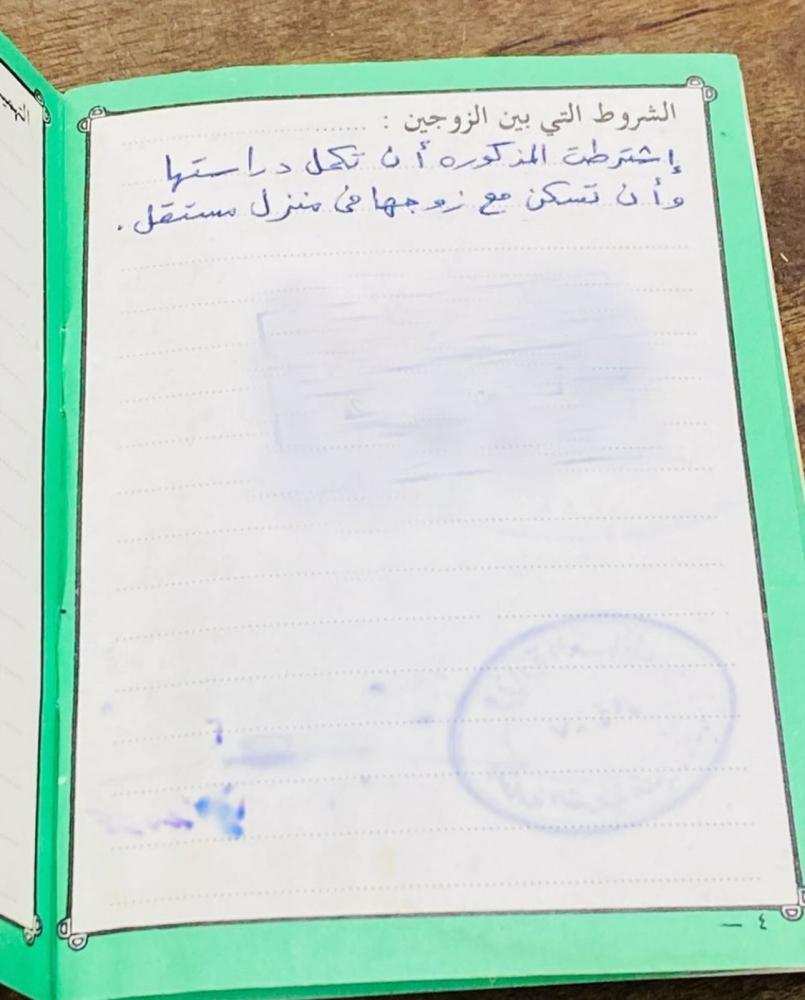 الشروط التي بين الزوجين : ..........
إشترطت المذكوره أن تكمل دراستها
وأن تسكن مع زوجها في منزل مستقل .
٤ —